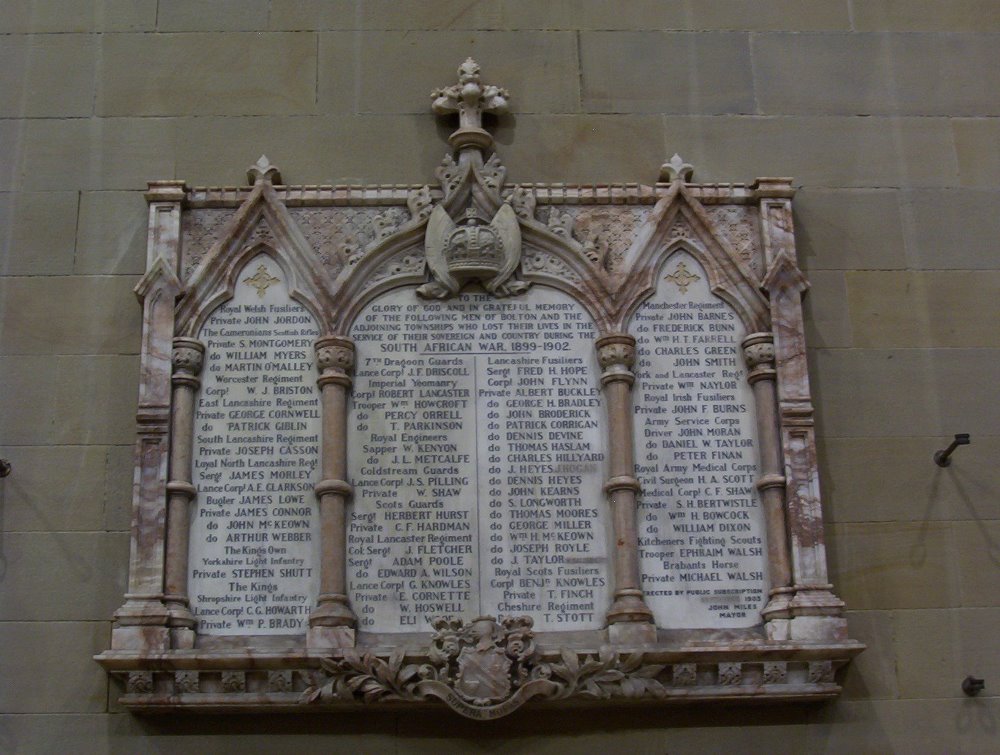 TO THE
GLORY OF GOD AND IN GRATEFUL MEMORY
OF THE FOLLOWING MEN OF BOLTON AND THE
ADJOINING TOWNSHIPS WHO LOST THEIR LIVES IN THE
SERVICE OF THEIR SOVEREIGN AND COUNTRY DURING THE
SOUTH AFRICAN WAR. 1899-1902.
Royal Welsh Fusiliers
Private JOHN JORDON
The Cameronians Scottish Rifles
Private S. MONTGOMERY
do WILLIAM MYERS
do MARTIN O'MALLEY
Worcester Regiment
Corpl W. J. BRISTON
East Lancashire Regiment
Private GEORGE CORNWELL
do PATRICK GIBLIN
South Lancashire Regiment
Private JOSEPH CASSON
Loyal North Lancashire Regt
Sergt JAMES MORLEY
Lance Corpl A.E. CLARKSON
Bugler JAMES LOWE
Private JAMES CONNOR
do JOHN McKEOWN
do ARTHUR WEBBER
The Kings Own
Yorkshire Light Infantry
Private STEPHEN SHUTT
The Kings
Shropshire Light Infantry
Lance Corpl C.G. HOWARTH
Private Wm P. BRADY
7th Dragoon Guards
Lance Corpl J.F. DRISCOLL
Imperial Yeomanry
Corpl ROBERT LANCASTER
Trooper Wm HOWCROFT
do PERCY ORRELL
do T. PARKINSON
Royal Engineers
Sapper W. KENYON
do J.L. METCALFE
Coldstream Guards
Lance Corpl J.S. PILLING
Private W. SHAW
Scots Guards
Sergt HERBERT HURST
Private C.F. HARDMAN
Royal Lancaster Regiment
Col Sergt J. FLETCHER
Sergt ADAM POOLE
do EDWARD A. WILSON
Lance Corpl G. KNOWLES
Private E. CORNETE
do W. HOSWELL
do ELI
Lancashire Fusiliers
Sergt FRED H. HOPE
Corpl JOHN FLYNN
Private ALBERT BUCKLEY
do GEORGE H. BRADLEY
do JOHN BRODERICK
do PATRICK CORRIGAN
do DENNIS DEVINE
do THOMAS HASLAM
do CHARLES HILLYARD
do J. HEYES. J. HOGAN
do DENNIS HEYES
do JOHN KEARNS
do S. LONGWORTH
do THOMAS MOORES
do GEORGE MILLER
do Wm H. McKEOWN
do JOSEPH ROYLE
do J. TAYLOR
Royal Scots Fusiliers
Corpl BENJn KNOWLES
Private T. FINCH
Cheshire Regiment
T. STOTT
Manchester Regiment
Private JOHN BARNES
do FREDERICK BUNN
do Wm H. T. FARRELL
do CHARLES GREEN
do JOHN SMITH
York and Lancaster Regt
Private Wm NAYLOR
Royal Irish Fusiliers
Private JOHN F. BURNS
Army Service Corps
Driver JOHN MORAN
do DANIEL W. TAYLOR
do PETER FINAN
Royal Army Medical Corps
Civil Surgeon H.A. SCOTT
Medical Corpl C.F. SHAW
Private S.H. BERTWISTLE
do Wm H. BOWCOCK
do WILLIAM DIXON
Kitcheners Fighting Scouts
Trooper EPHRAIM WALSH
Brabants Horse
Private MICHAEL WALSH
ERECTED BY PUBLIC SUBSCRIPTION
1903
JOHN MILES
MAYOR